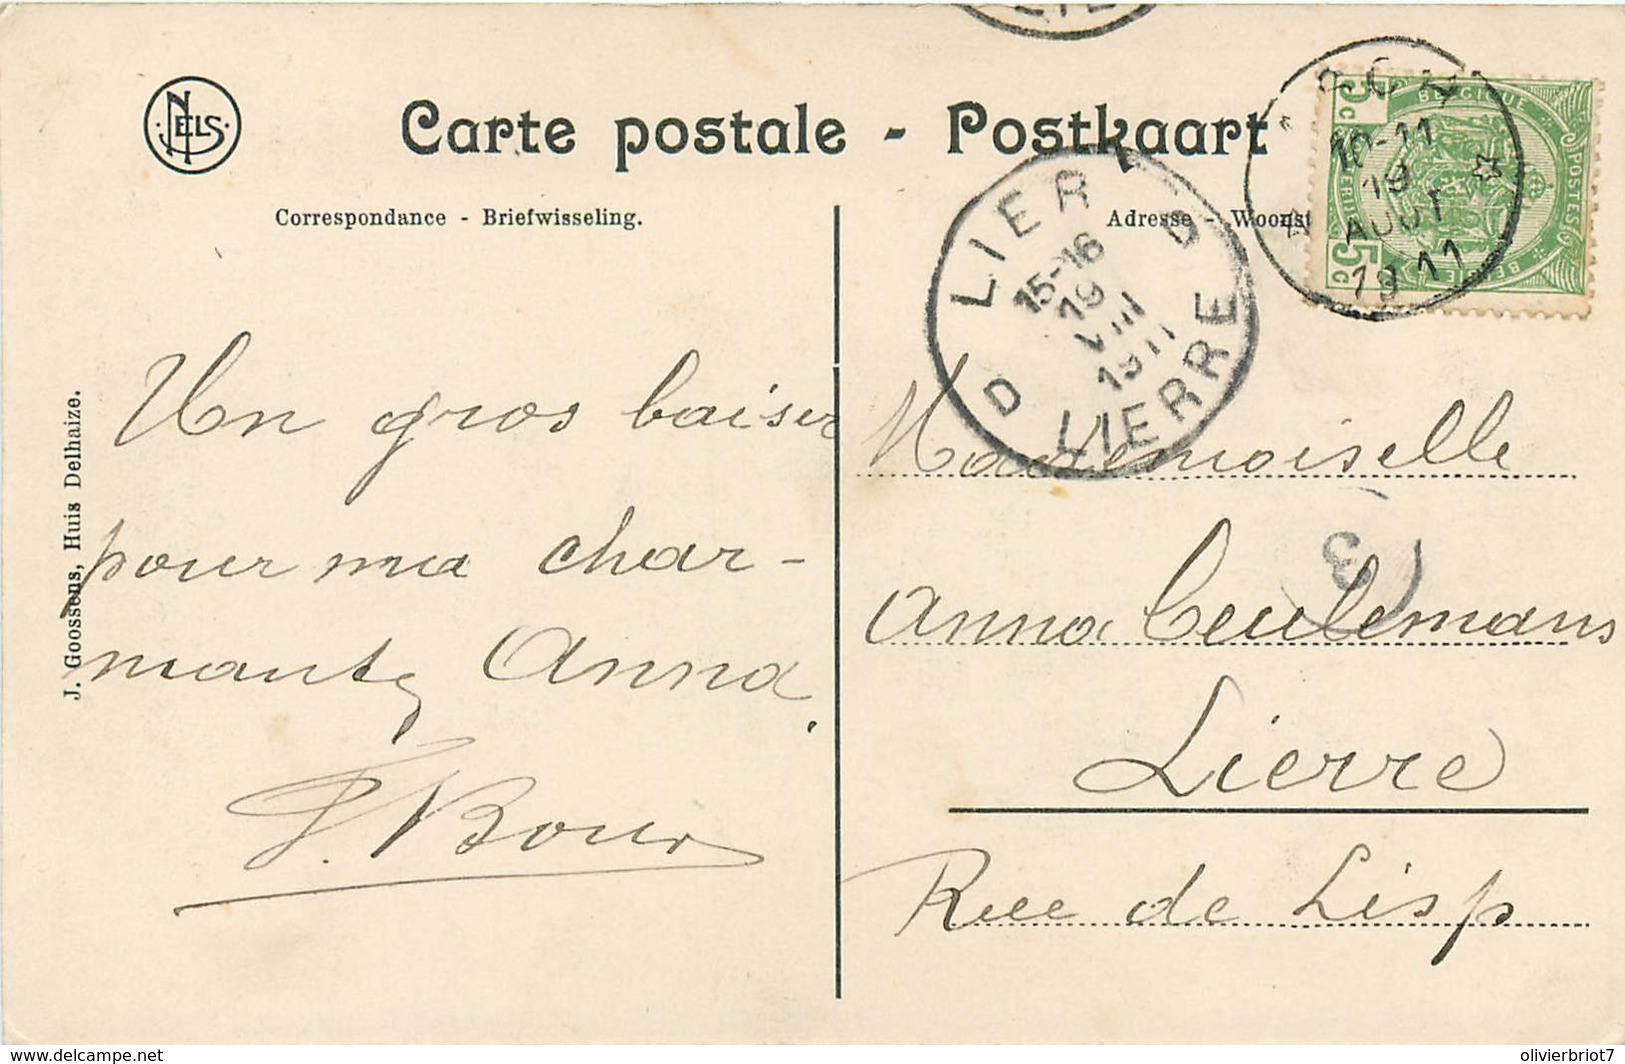 NELS
Carte postale - Postkaart
Correspondance - Briefwisseling.
Adresse - Woonst
BELGIQUE
5c
POSTES
5c
BELGIË
10-11
19
AOUT
1911
LIER D
15-16
19
VIII
1911
D LIERRE
J. Goossens, Huis Delhaize.
Un gros baiser
pour ma char-
mante Anna.
Mademoiselle
3
Anna Ceulemans
Lierre
Rue de Lisp
www.delcampe.net
olivierbriot7